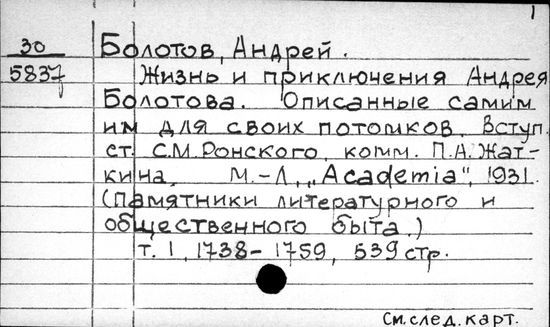 1
30
5837
Болотов, Андрей.
Жизнь и приключения Андрея
Болотова. Описанные самим
им для своих потомков. Вступ.
ст. С.М.Ронского, комм. П.А.Жат-
кина, М.-Л., „Academia", 1931.
(Памятники литературного и
общественного быта.)
т. 1, 1738-1759, 539 стр.
См.след.карт.